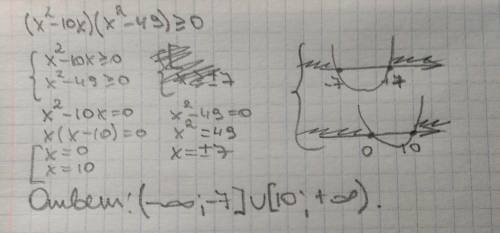 (x²-10x)(x²-49)≥0
{ x²-10x≥0
x²-49≥0
±7
x²-10x=0 x²-49=0
x(x-10)=0 x²=49
[ x=0 x=±7
x=10
-7 +7
0 10
Ответ: (-∞;-7]∪[10;+∞).